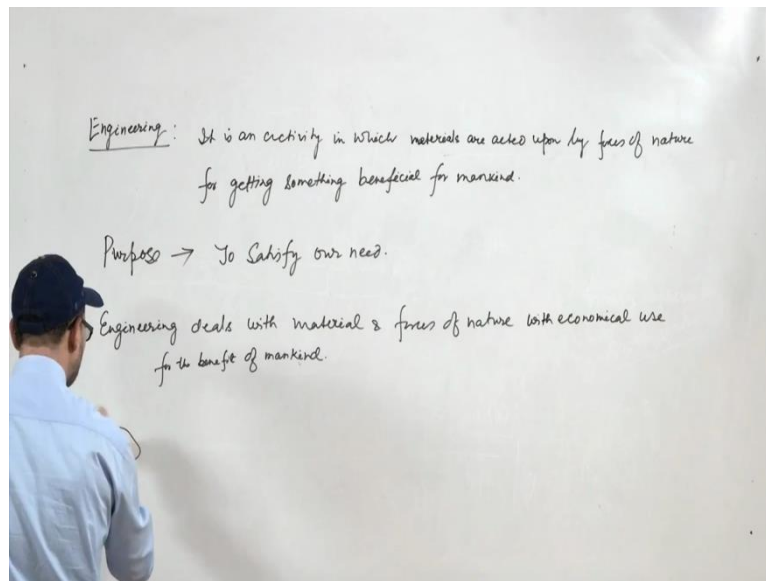 Engineering : It is an activity in which materials are acted upon by forces of nature
for getting something beneficial for mankind.
Purpose → To Satisfy our need.
Engineering deals with material & forces of nature with economical use
for the benefit of mankind.